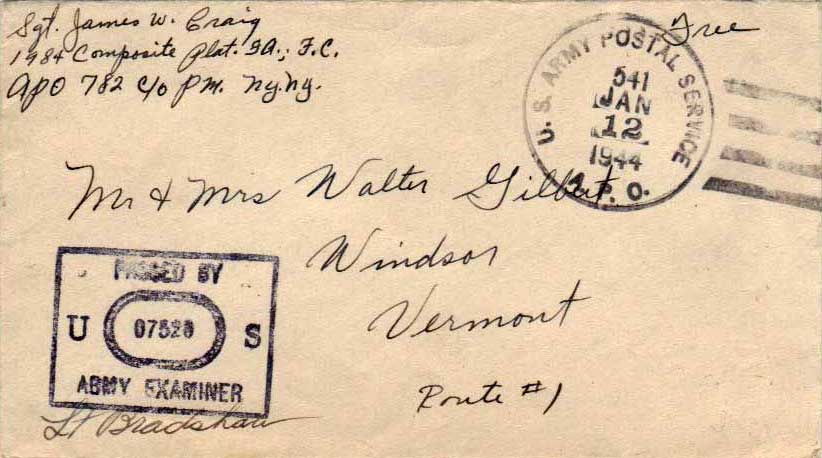 Sgt. James W. Craig
1984 Composite Plat. F.A., F.C.
APO 782 c/o P.M. N.Y. N.Y.
Free
U. S. ARMY POSTAL SERVICE
541
JAN
12
1944
A.P.O.
Mr & Mrs Walter Gilbert
Windsor
Vermont
Route #1
PASSED BY
U 07520 S
ARMY EXAMINER
Lt Bradshaw